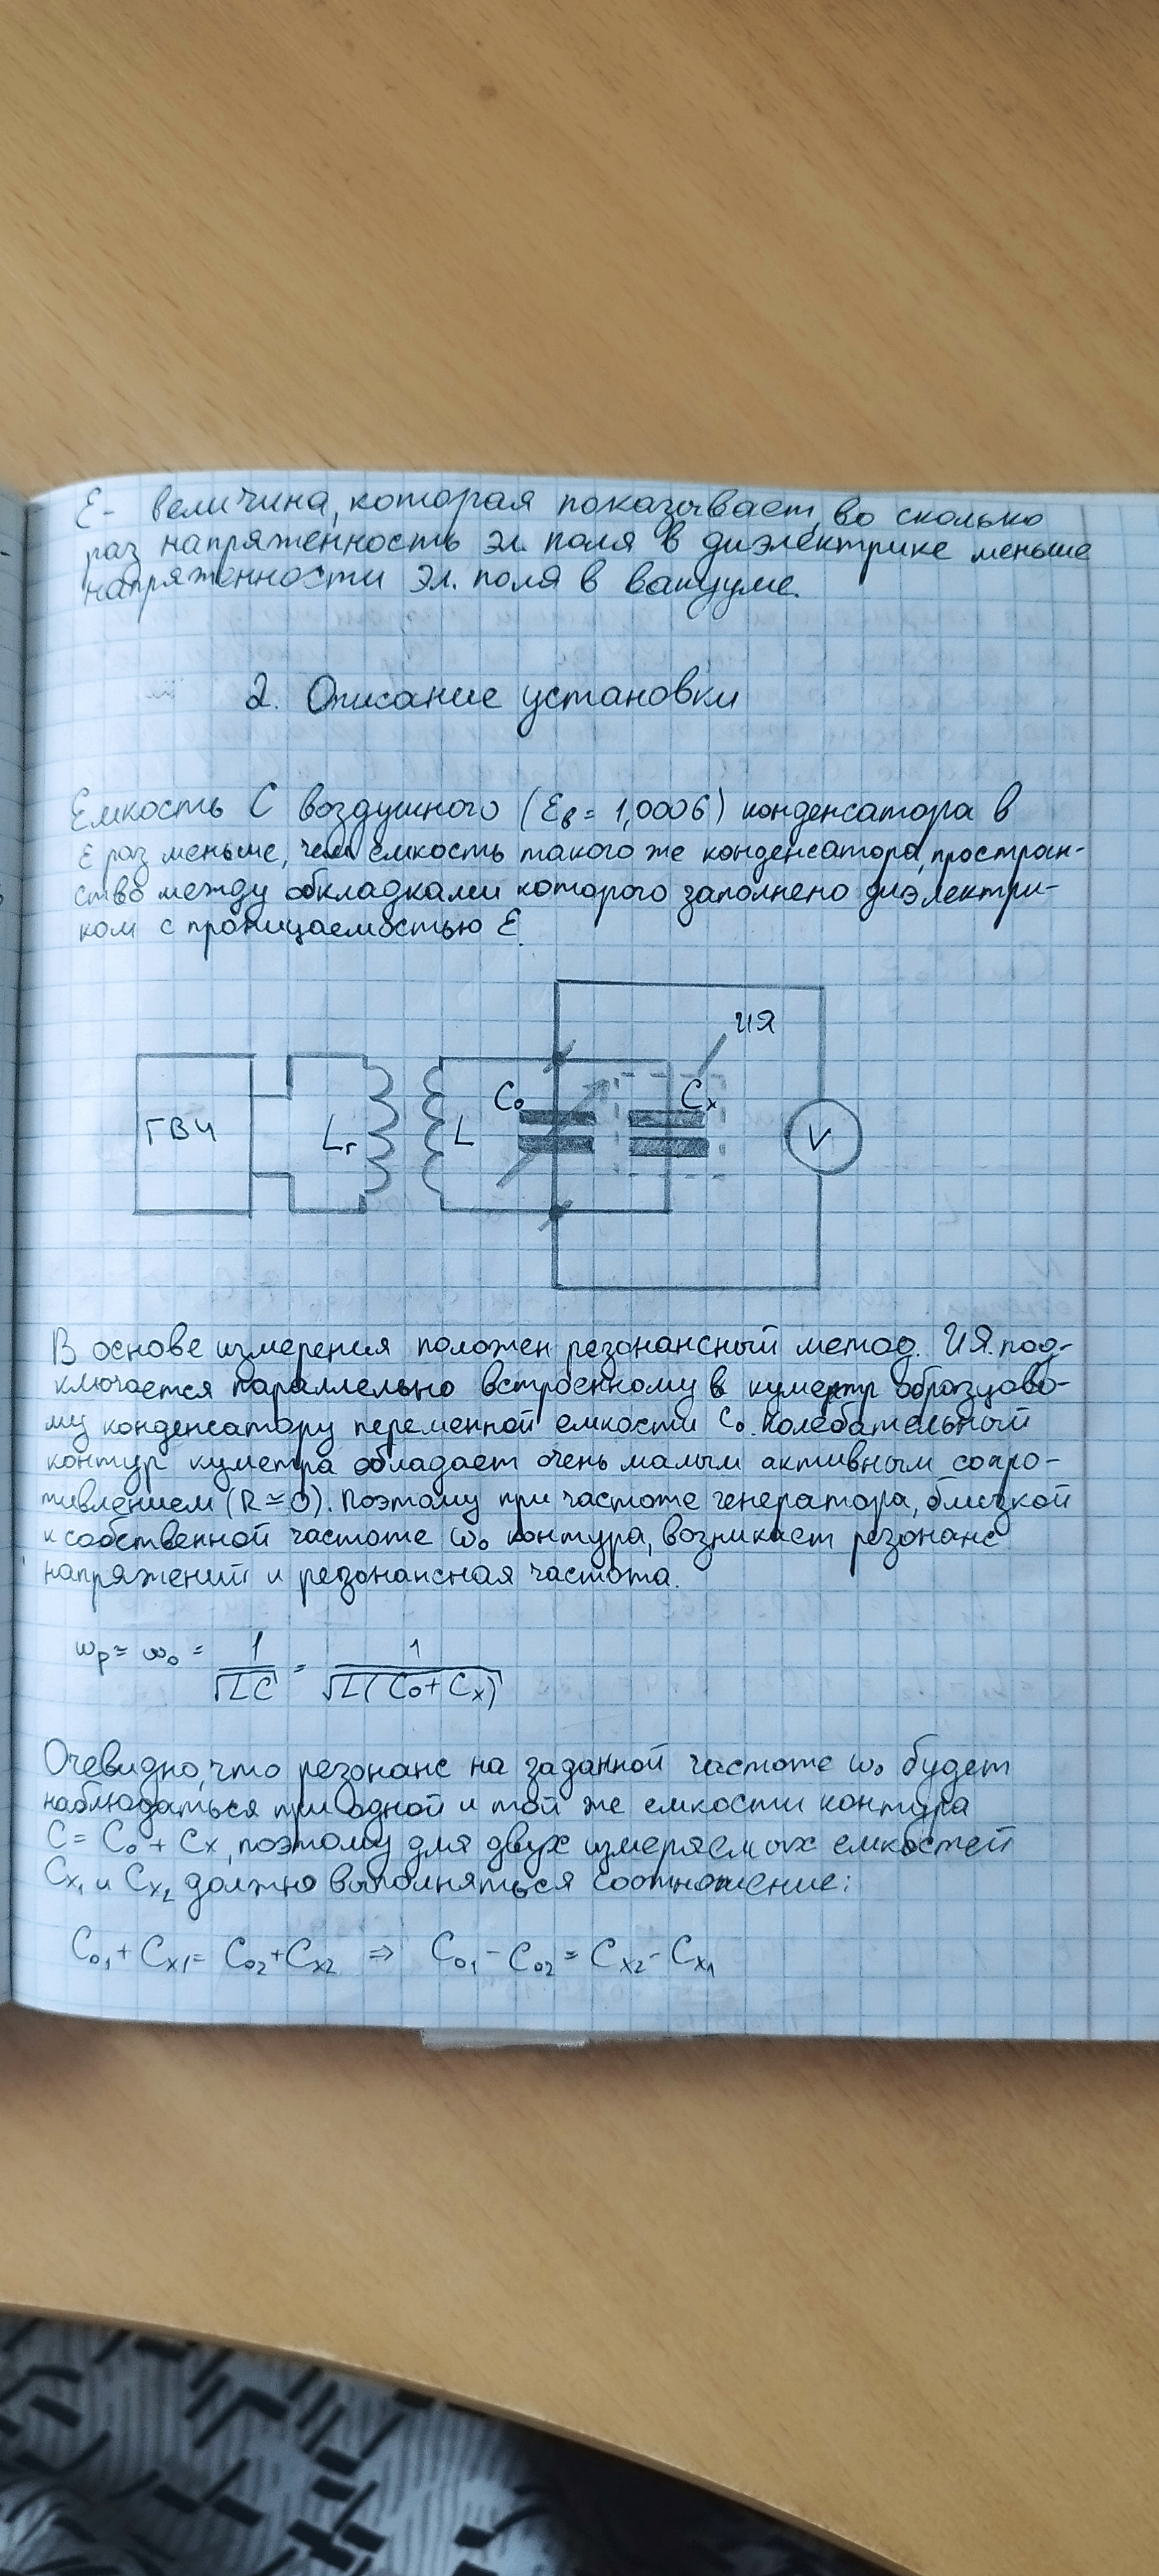 ε - величина, которая показывает, во сколько
раз напряженность эл. поля в диэлектрике меньше
напряженности эл. поля в вакууме.
2. Описание установки
Емкость C воздушного (εв = 1,0006) конденсатора в
ε раз меньше, чем емкость такого же конденсатора, простран-
ство между обкладками которого заполнено диэлектри-
ком с проницаемостью ε.
ИЯ
C₀ Cₓ
ГВЧ Lг L V
В основе измерения положен резонансный метод. И.Я. под-
ключается параллельно встроенному в куметр образцово-
му конденсатору переменной емкости C₀. Колебательный
контур куметра обладает очень малым активным сопро-
тивлением (R ≃ 0). Поэтому при частоте генератора, близкой
к собственной частоте ω₀ контура, возникает резонанс
напряжений и резонансная частота.
ωр ≈ ω₀ = 1/√LC = 1/√L(C₀+Cₓ)
Очевидно, что резонанс на заданной частоте ω₀ будет
наблюдаться при одной и той же емкости контура
C = C₀ + Cx, поэтому для двух измеряемых емкостей
Cx₁ и Cx₂ должно выполняться соотношение:
C₀₁ + Cx₁ = C₀₂ + Cx₂ ⇒ C₀₁ - C₀₂ = Cx₂ - Cx₁